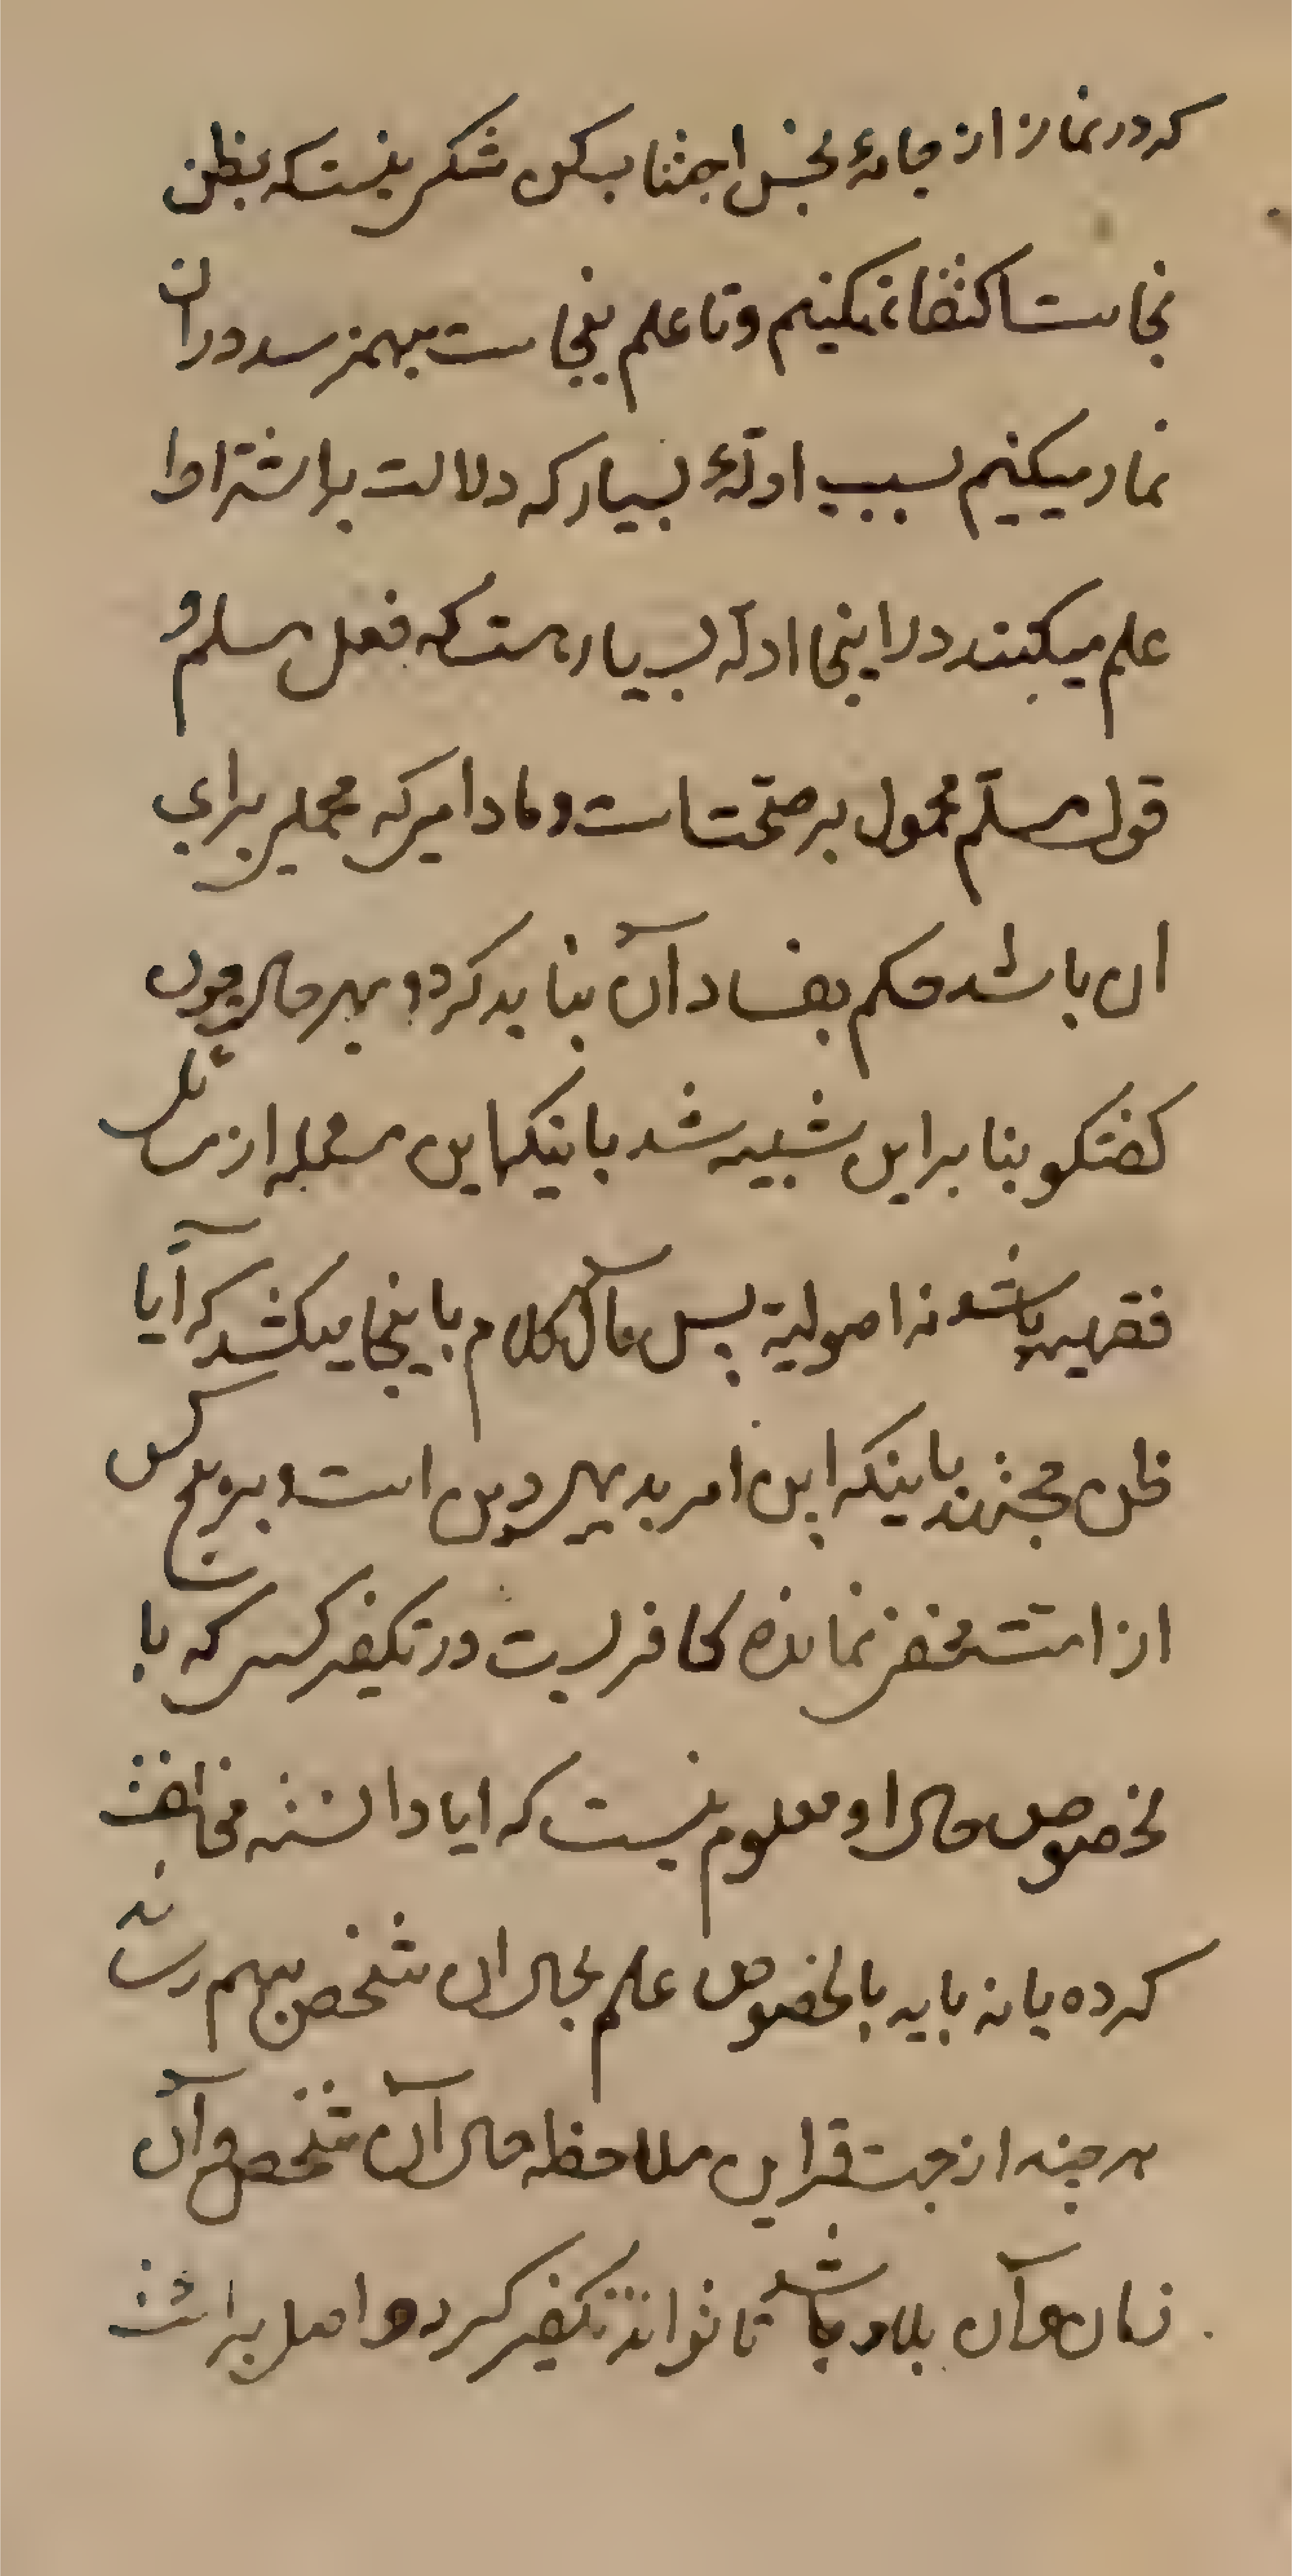 که در نماز از جامهٔ نجس اجتناب کن شکی نیست که بظن
نجاست اکتفا نمیکنیم و تا علم بنجاست بهم نرسد در ان
نماز میکنیم بسبب ادلهٔ بسیار که دلالت بر اشتراط
علم میکنند در اینجا ادله بسیار هست که فعل مسلم و
قول مسلم محمول بر صحتست و مادامی که محملی برای
ان باشد حکم بفساد آن نباید کرد و بهر حال چون
گفتگو بنا براین شبیه شد باینکه این مسئله از مسائل
فقهیه باشد نه اصولیة پس مآل کلام باینجا میکشد که آیا
ظن مجتهد باینکه این امر بدیهی دین است و بر هیچ کس
از امت مخفی نمانده کافیست در تکفیر کسی که با
بخصوص حال او معلوم نیست که ایا دانسته مخالفت
کرده یا نه باید بالخصوص علم بحال ان شخص بهم رساند
هر چند از جهت قراین ملاحظه حال آن شخص و آن
زمان و آن بلاد باشد تا تواند تکفیر کرد و اصل برائت